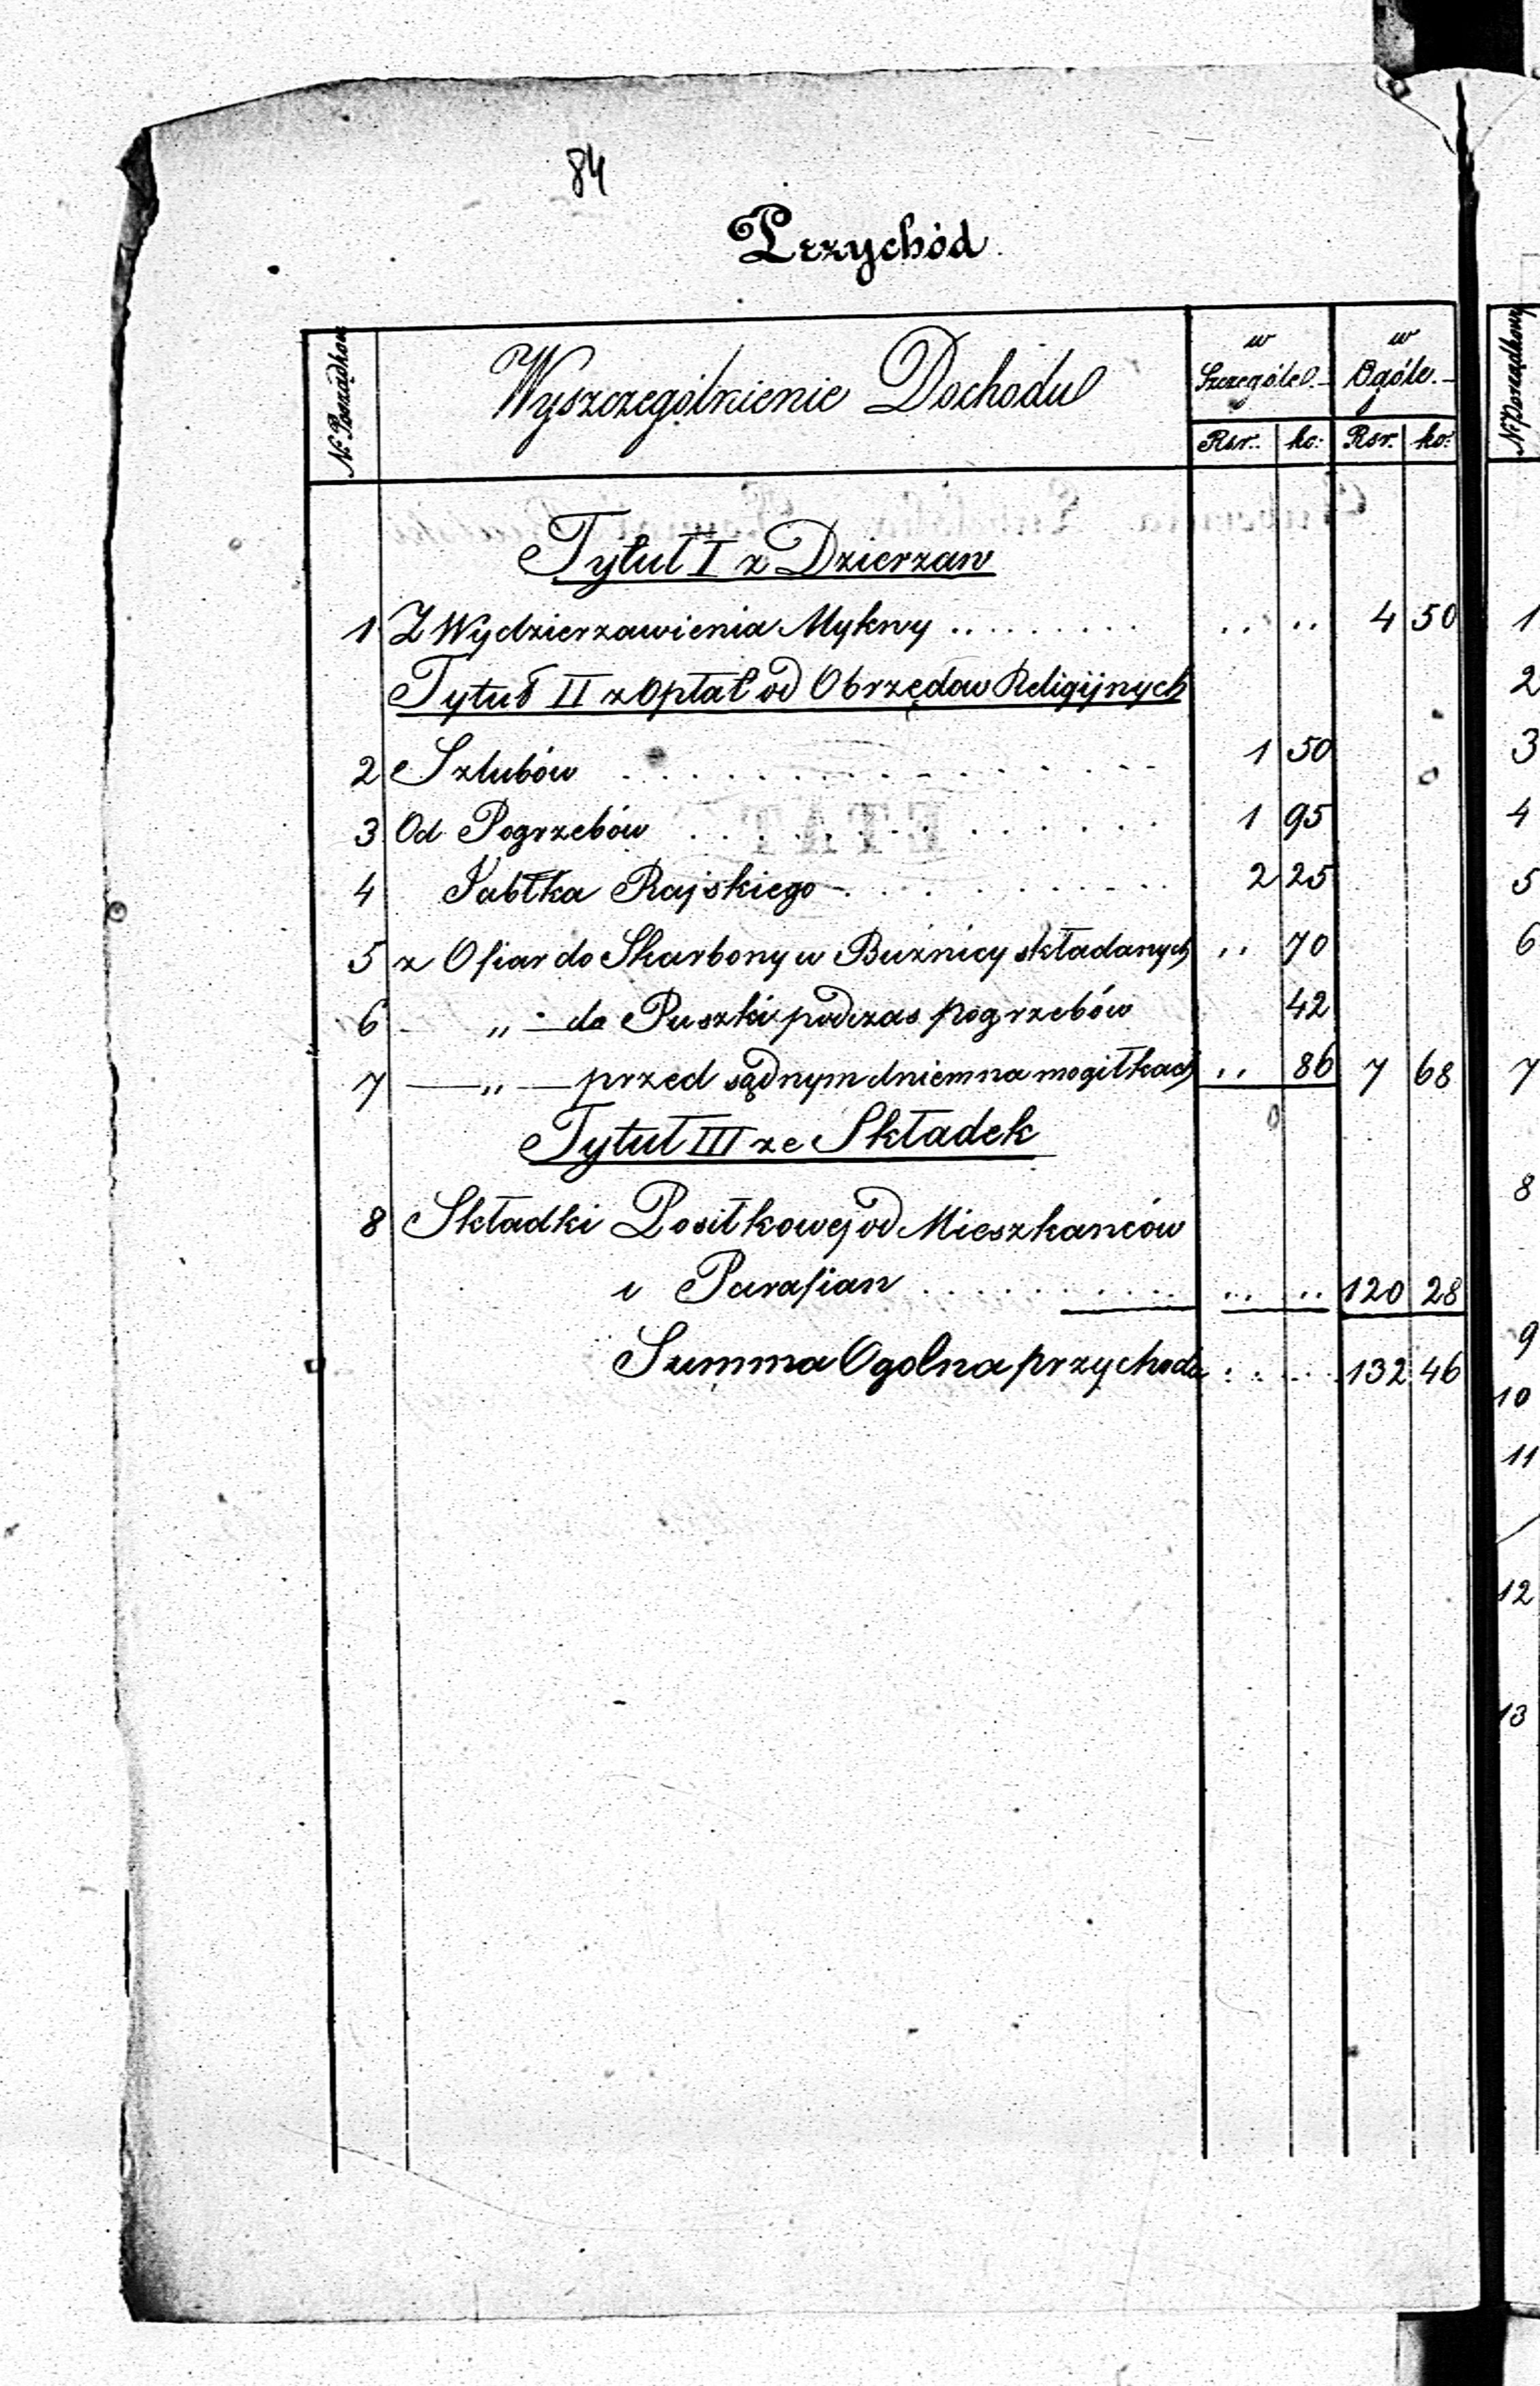 84
Przychód
№ Porządkow
Wyszczególnienie Dochodu
w Szczególe
w Ogóle
Rsr. ko: Rsr. ko:
№ Porządkowy
Tytuł I z Dzierzaw
1 Z Wydzierzawienia Mykwy . . . . . . . . . .. .. 4 50
Tytuł II z Opłat od Obrzędow Religijnych
2 Szlubów . . . . . . . . . 1 50
3 Od Pogrzebów . . . . . . . . . 1 95
4 Jabłka Rajskiego . . . . . . . . . 2 25
5 z Ofiar do Skarbony w Buźnicy składanych .. 70
6 — „ — do Puszki podczas pogrzebów 42
7 — „ — przed sądnym dniem na mogiłkach .. 86 7 68
Tytuł III ze Składek
8 Składki Posiłkowej od Mieszkanców
i Parafian . . . . . . . . . .. .. 120 28
Summa Ogolna przychodu . . . . 132 46
1
2
3
4
5
6
7
8
9
10
11
12
13